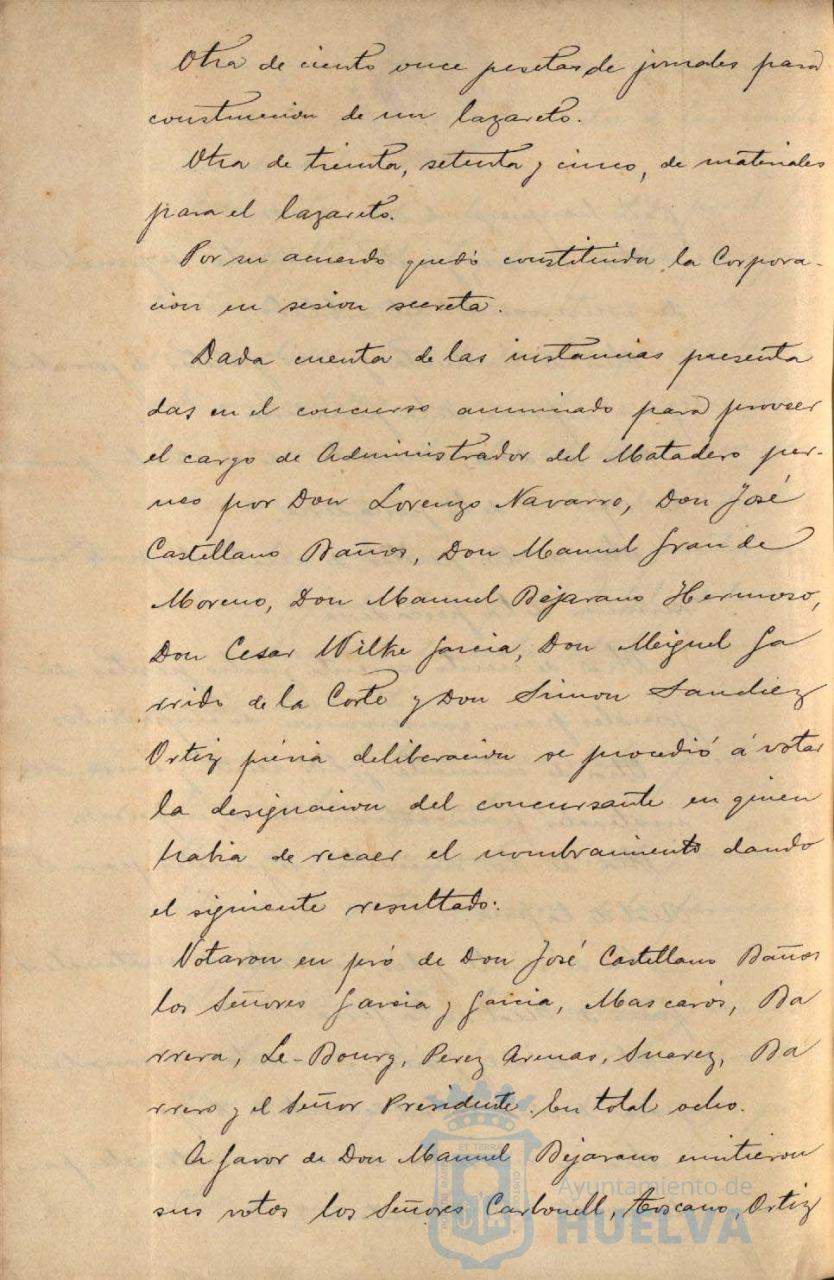 Otra de ciento once pesetas de jornales para
construccion de un lazareto.
Otra de treinta, setenta y cinco, de materiales
para el lazareto.
Por su acuerdo quedó constituida la Corpora-
cion en sesion secreta.
Dada cuenta de las instancias presenta
das en el concurso anunciado para proveer
el cargo de Administrador del Matadero pu-
blico por Don Lorenzo Navarro, Don José
Castellano Baños, Don Manuel Grande
Moreno, Don Manuel Bejarano Hermoso,
Don Cesar Wilke Garcia, Don Miguel Ga
rrido de la Corte y Don Simon Sanchez
Ortiz prévia deliberacion se procedió á votar
la designacion del concursante en quien
habia de recaer el nombramiento dando
el siguiente resultado:
Votaron en pró de Don José Castellano Baños
los Señores Garcia y Garcia, Mascarós, Ba
rrera, Le-Bourg, Perez Arenas, Suarez, Ba
rrero y el Señor Presidente. En total ocho.
A favor de Don Manuel Bejarano emitieron
sus votos los Señores Carbonell, Toscano, Ortiz
Ayuntamiento de
HUELVA